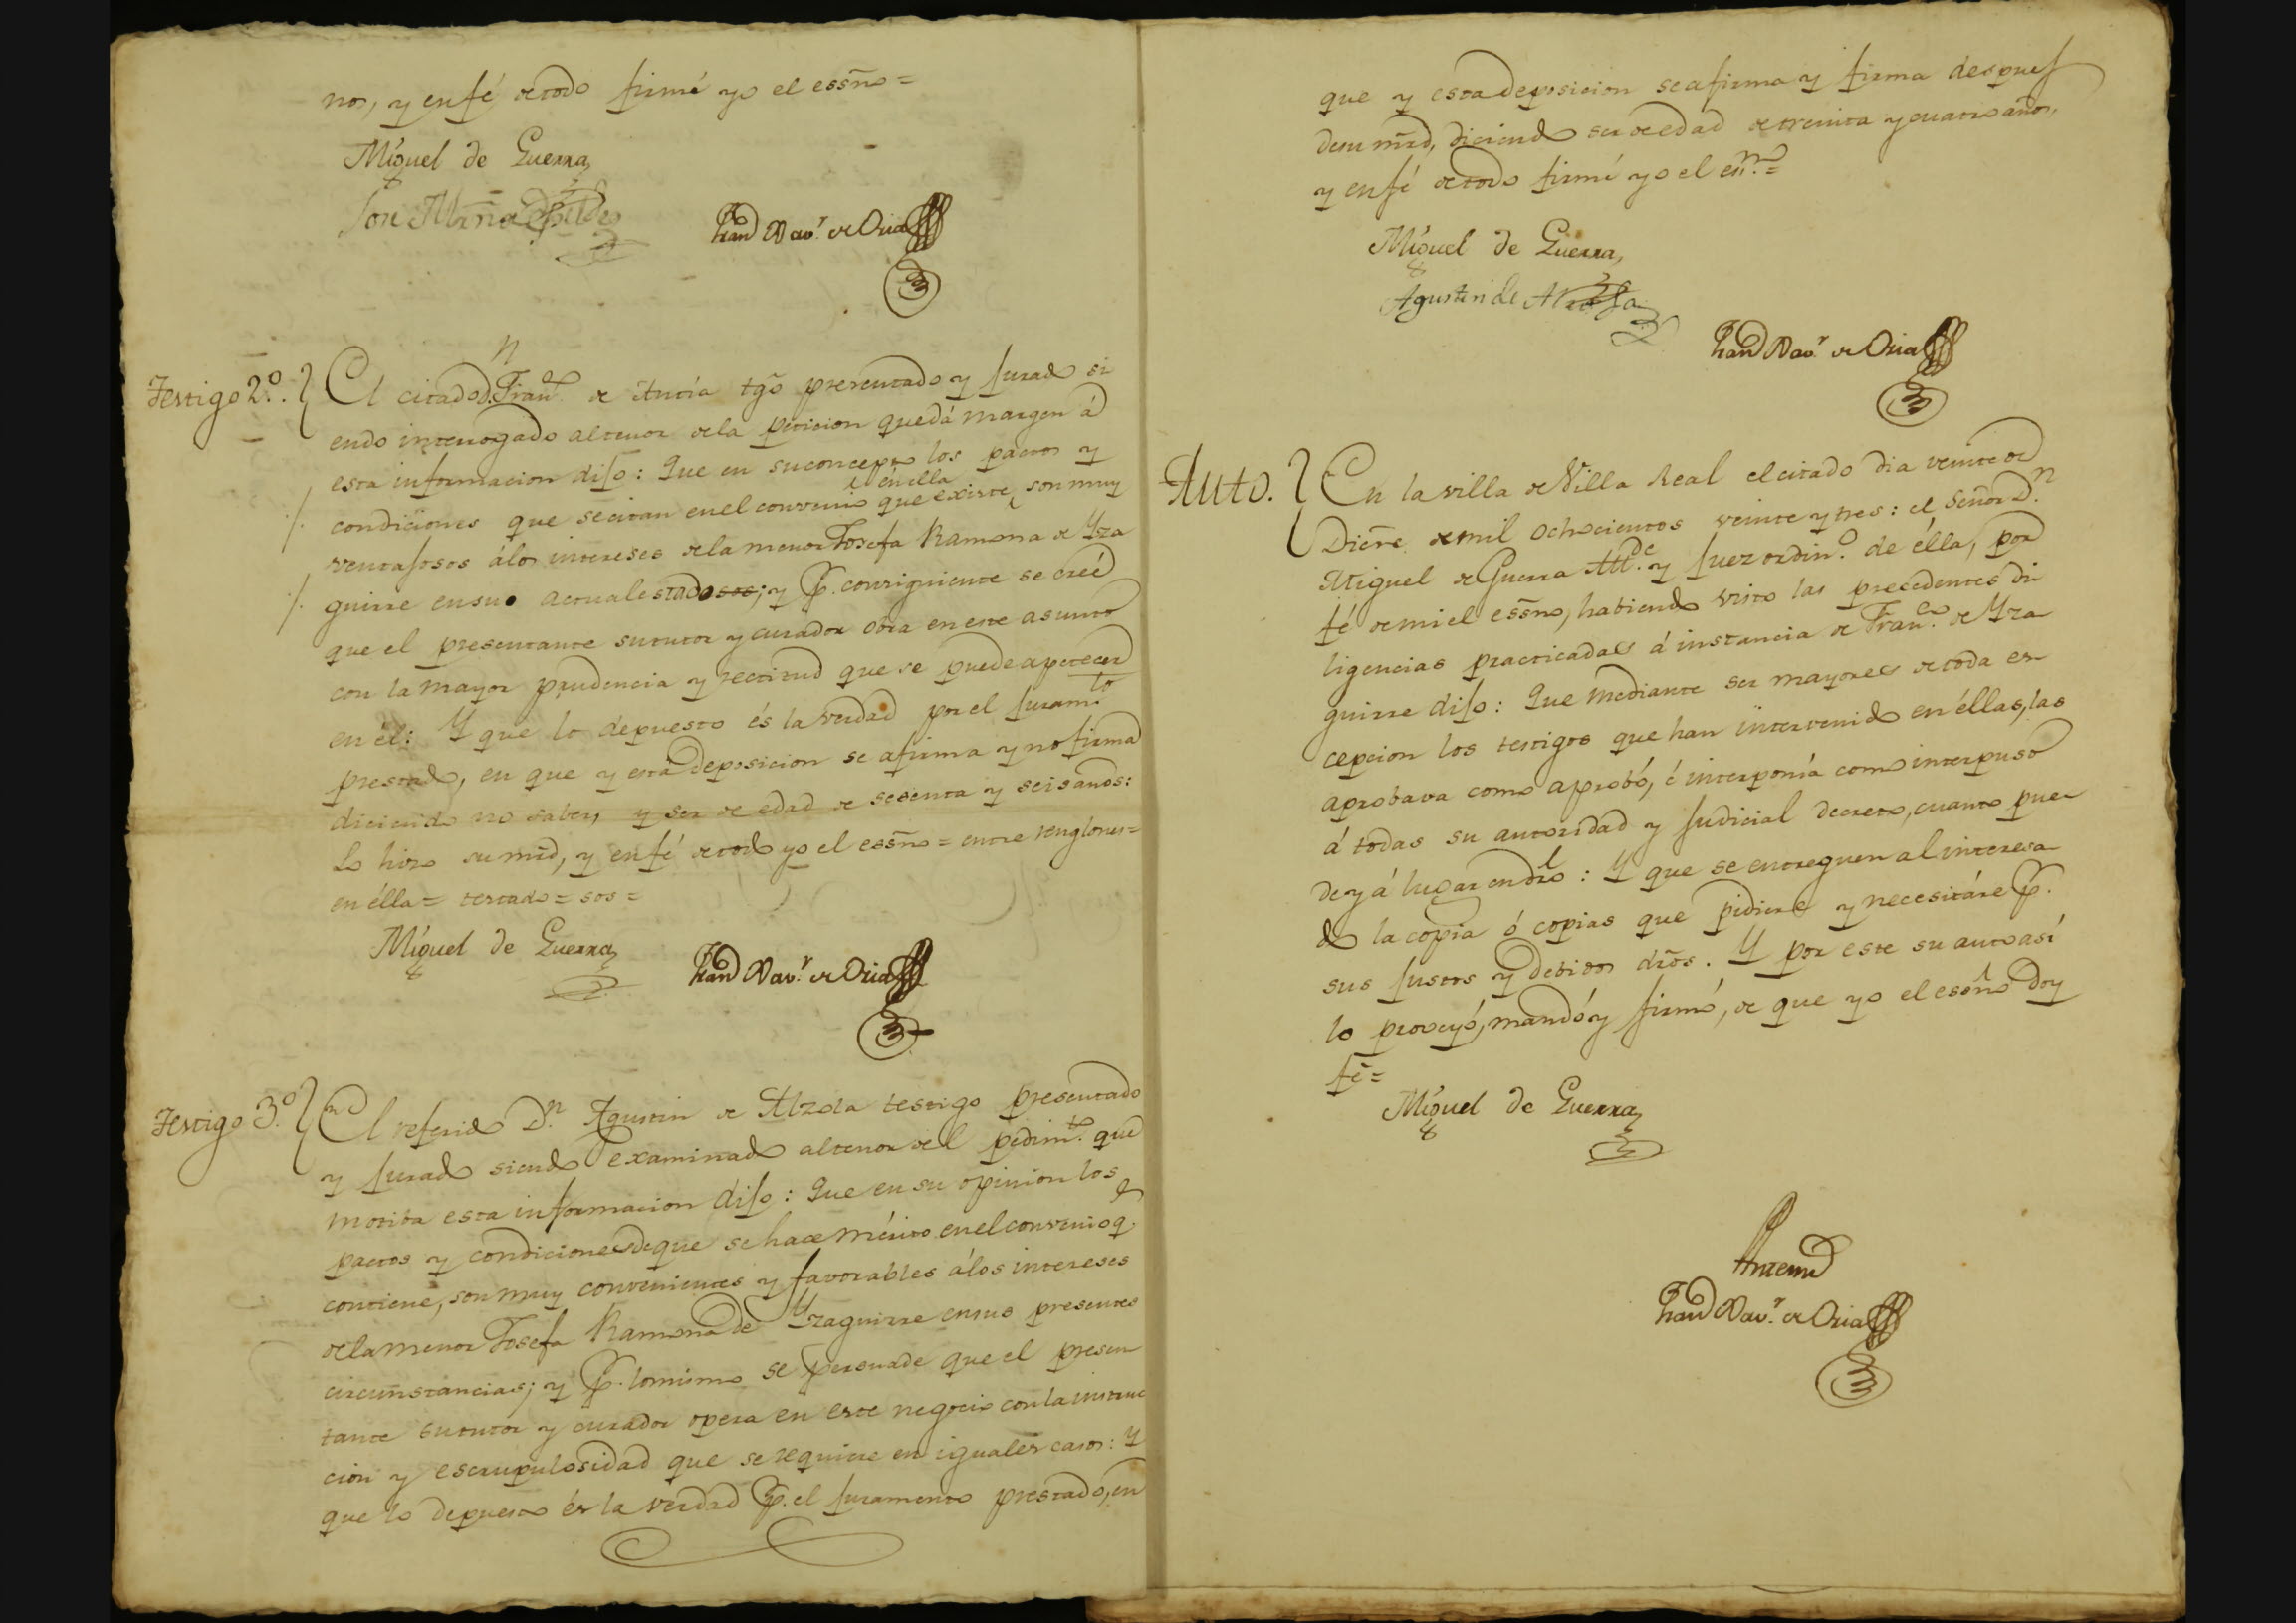 nos, y en fé de todo firmé yo el essño =
Miguel de Guerra
José Maria
Testigo 2º. El citado Dn. Franco. de Antía tgo presentado y jurado si
endo interrogado al tenor de la peticion que dá margen á
esta informacion dijo: Que en su concepto los pactos y
en élla
condiciones que se citan en el convenio que existe, son muy
ventajosos á los intereses de la menor Josefa Ramona de Yza
guirre en su actual estado sos; y p. consiguiente se creé
que el presentante su tutor y curador obra en este asunto
con la mayor prudencia y rectitud que se puede apetecer
en él: Y que lo depuesto és la verdad por el juramto.
prestado, en que y esta deposicion se afirma y no firma
diciendo no saber, y ser de edad de sesenta y seis años:
Lo hizo su mrd, y en fé de todo yo el essño = entre renglones =
en élla = testado = sos =
Miguel de Guerra
Testigo 3º. El referido Dn. Agustin de Alzola testigo presentado
y jurado siendo examinado al tenor del pedimto. que
motiba esta informacion dijo: Que en su opinion los
pactos y condiciones de que se hace mérito en el convenio q.e
contiene, son muy convenientes y favorables á los intereses
de la menor Josefa Ramona de Yzaguirre en sus presentes
circunstancias; y p. lo mismo se persuade que el presen
tante su tutor y curador opera en este negocio con la instruc
cion y escrupulosidad que se requiere en iguales casos: Y
que lo depuesto és la verdad p. el juramento prestado, en
que y esta deposicion se afirma y firma despues
de su mrd, diciendo ser de edad de treinta y cuatro años,
y en fé de todo firmé yo el essno. =
Miguel de Guerra
Agustin de Alzola
Auto. En la villa de Villa Real el citado dia veinte de
Dicre. de mil ochocientos veinte y tres: el Señor Dn.
Miguel de Guerra Alde. y Juez ordino. de élla, por
fé de mi el essño, habiendo visto las precedentes di
ligencias practicadas á instancia de Franco. de Yza
guirre dijo: Que mediante ser mayores de toda es
cepcion los testigos que han intervenido en éllas, las
aprobava como aprobó, é interponía como interpuso
á todas su autoridad y Judicial decreto, cuanto pue
de y á lugar en dro: Y que se entreguen al interesa
do la copia ó copias que pidiere y necesitáre p.
sus justos y debidos dros. Y por este su auto así
lo proveyó, mandó y firmó, de que yo el essño doy
fé =
Miguel de Guerra
Antemi